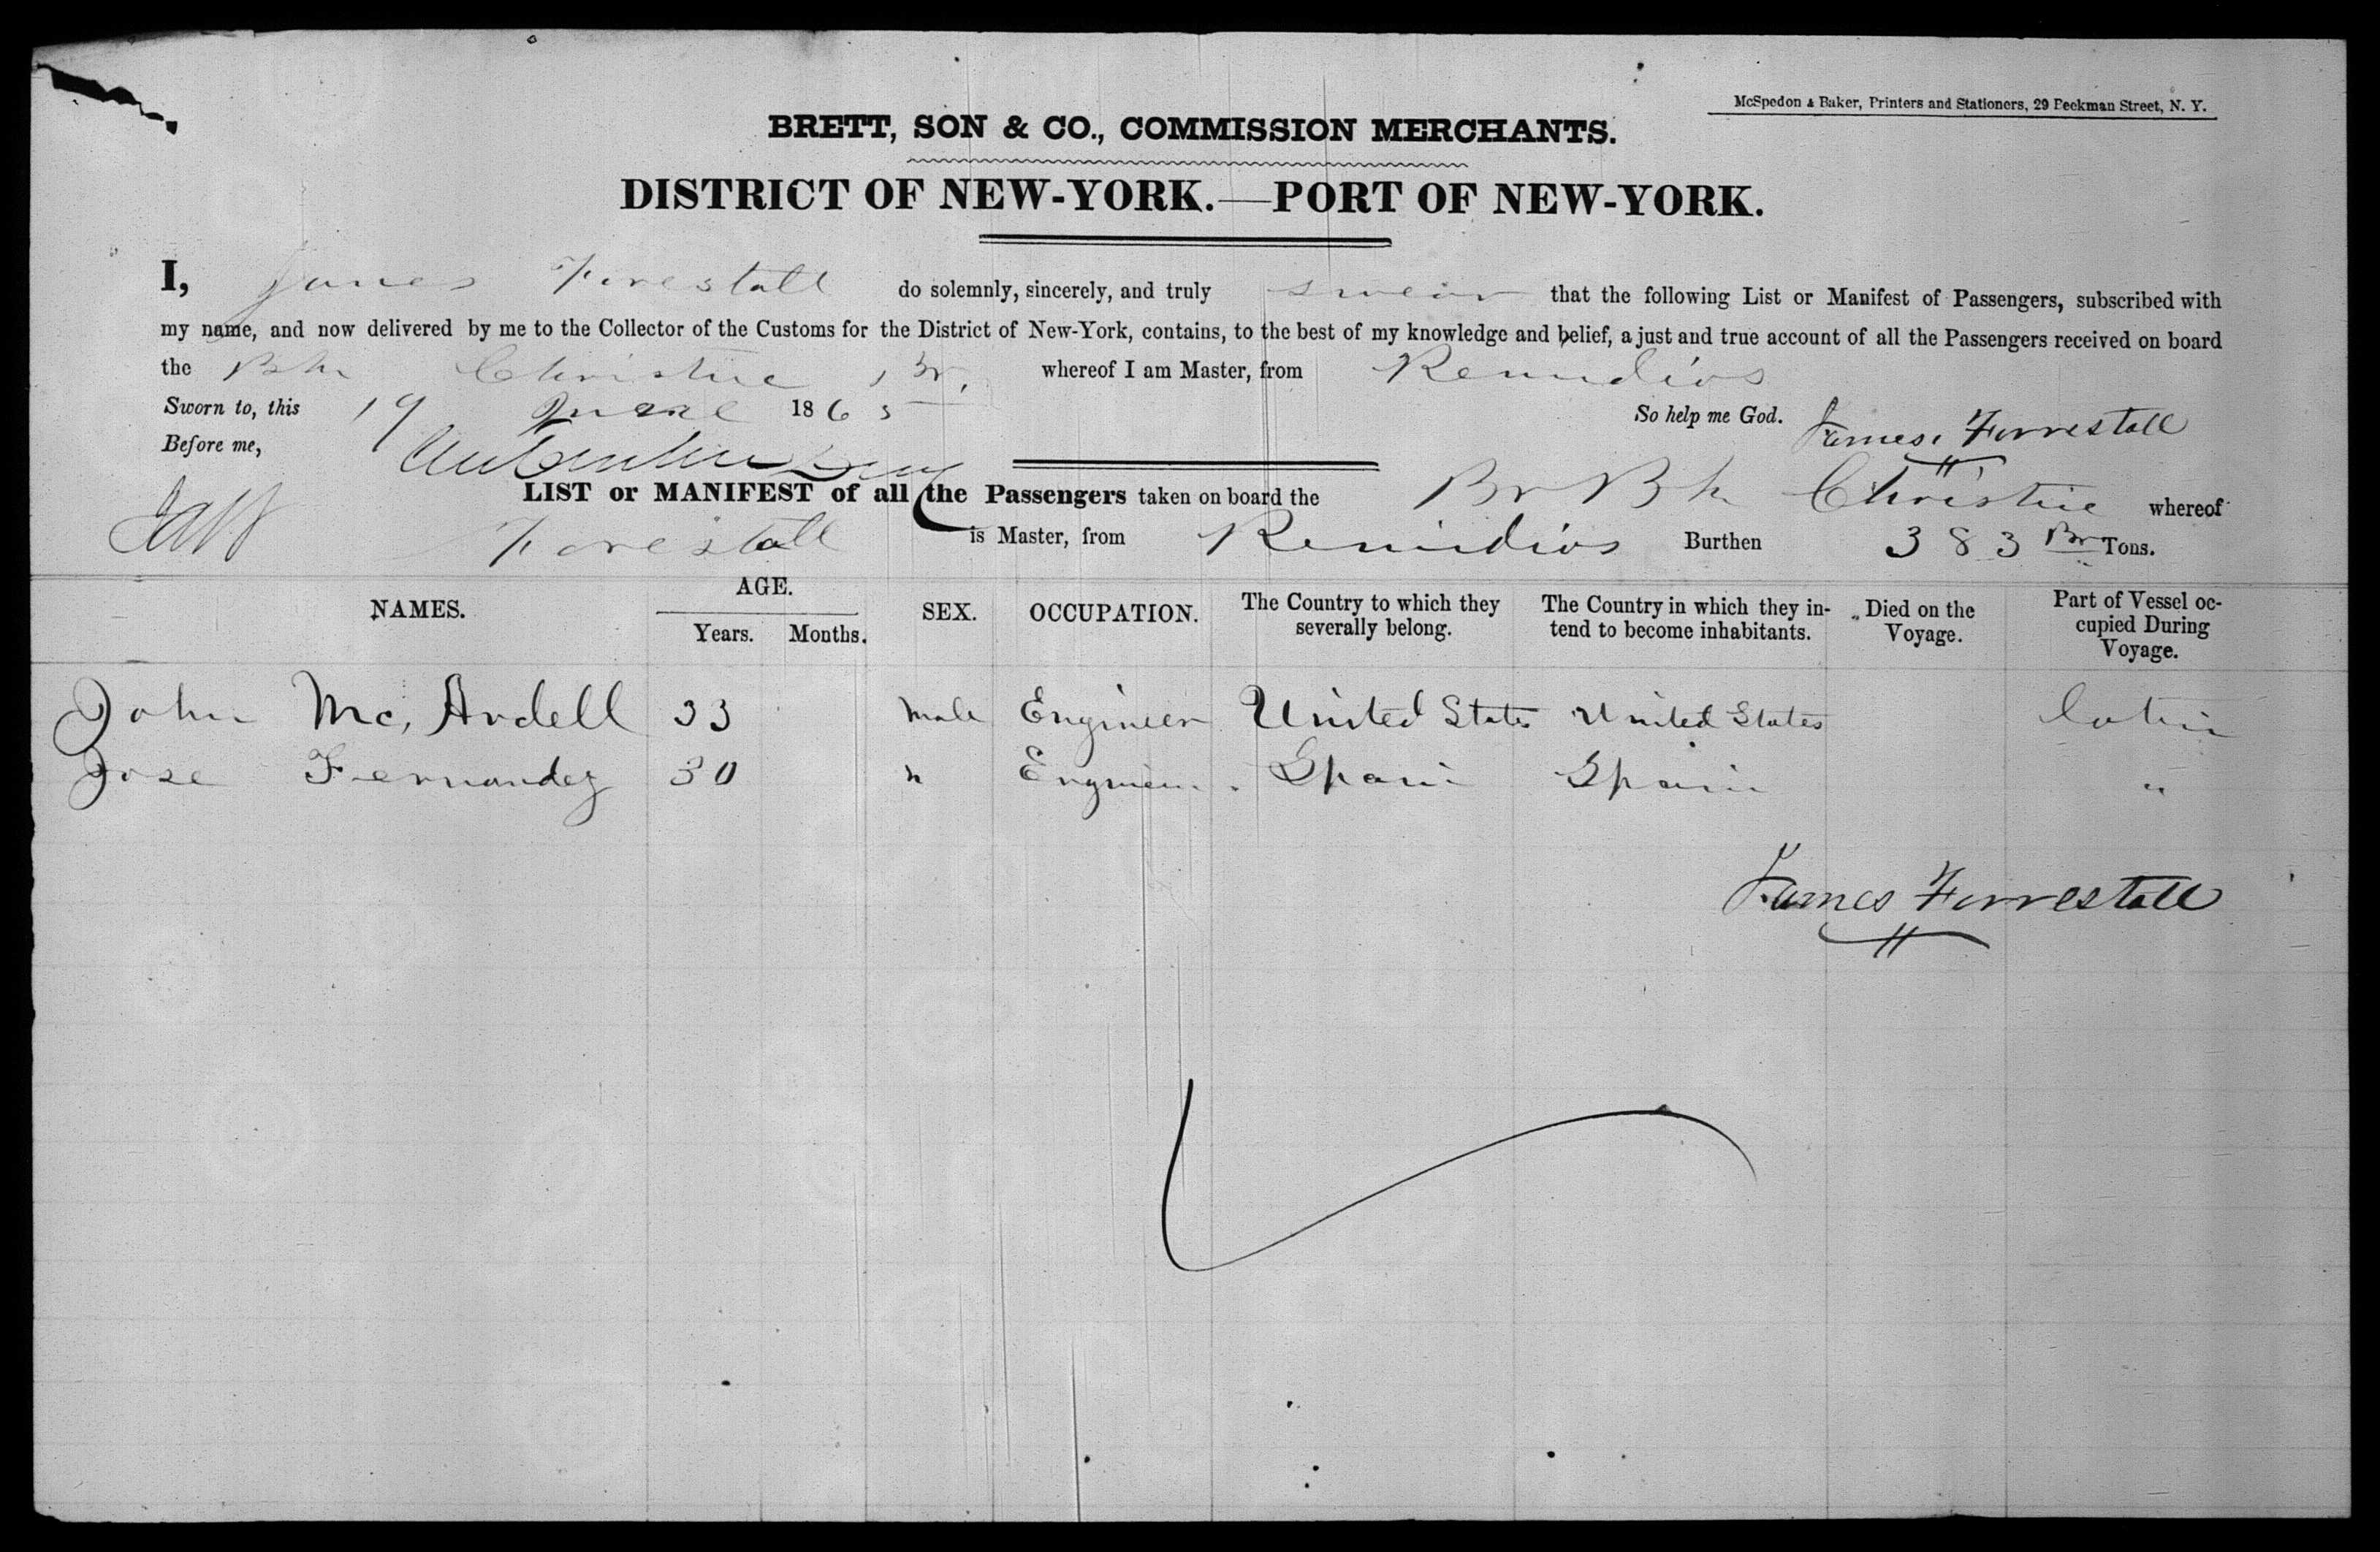 McSpedon & Baker, Printers and Stationers, 29 Beekman Street, N. Y.
BRETT, SON & CO., COMMISSION MERCHANTS.
DISTRICT OF NEW-YORK.—PORT OF NEW-YORK.
I, James Forestall do solemnly, sincerely, and truly swear that the following List or Manifest of Passengers, subscribed with
my name, and now delivered by me to the Collector of the Customs for the District of New-York, contains, to the best of my knowledge and belief, a just and true account of all the Passengers received on board
the Bk Christie, Br. whereof I am Master, from Remidios
Sworn to, this 19 June 1865 So help me God. James Forrestall
Before me,
LIST or MANIFEST of all the Passengers taken on board the Br Bk Christie whereof
Forestall is Master, from Remidios Burthen 383 Br Tons.
NAMES. AGE. Years. Months. SEX. OCCUPATION. The Country to which they severally belong. The Country in which they intend to become inhabitants. Died on the Voyage. Part of Vessel occupied During Voyage.
John Mc, Ardell 33 Male Engineer United States United States Cabin
Jose Fernandez 30 " Engineer Spain Spain "
James Forrestall